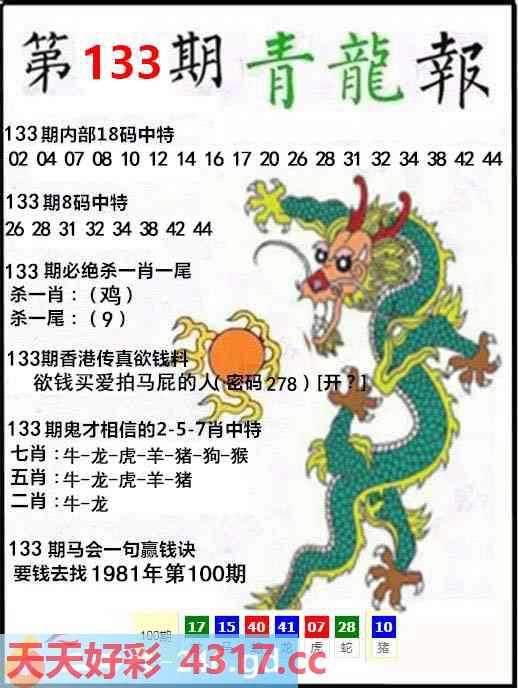 第133期青龍報
133期内部18码中特
02 04 07 08 10 12 14 16 17 20 26 28 31 32 34 38 42 44
133期8码中特
26 28 31 32 34 38 42 44
133期必绝杀一肖一尾
杀一肖：（鸡）
杀一尾：（9）
133期香港传真欲钱料
欲钱买爱拍马屁的人（密码278）[开？]
133期鬼才相信的2-5-7肖中特
七肖：牛-龙-虎-羊-猪-狗-猴
五肖：牛-龙-虎-羊-猪
二肖：牛-龙
133期马会一句赢钱诀
要钱去找1981年第100期
100期 17 15 40 41 07 28 10
马 龙 虎 蛇 猪
天天好彩 4317.cc